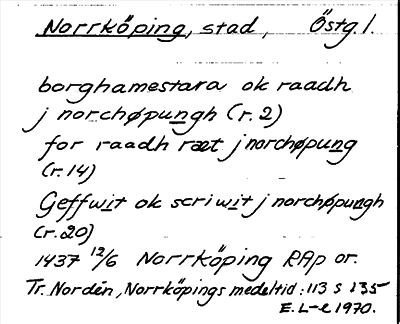 Norrköping, stad, Östg.l.
borghamestara ok raadh
j norchøpungh (r. 2)
for raadh ræt j norchøpung
(r. 14)
Geffwit ok scriwit j norchøpungh
(r. 20)
1437 12/6 Norrköping RAp or.
Tr. Nordén, Norrköpings medeltid: 113 s 135
E. L-e 1970.